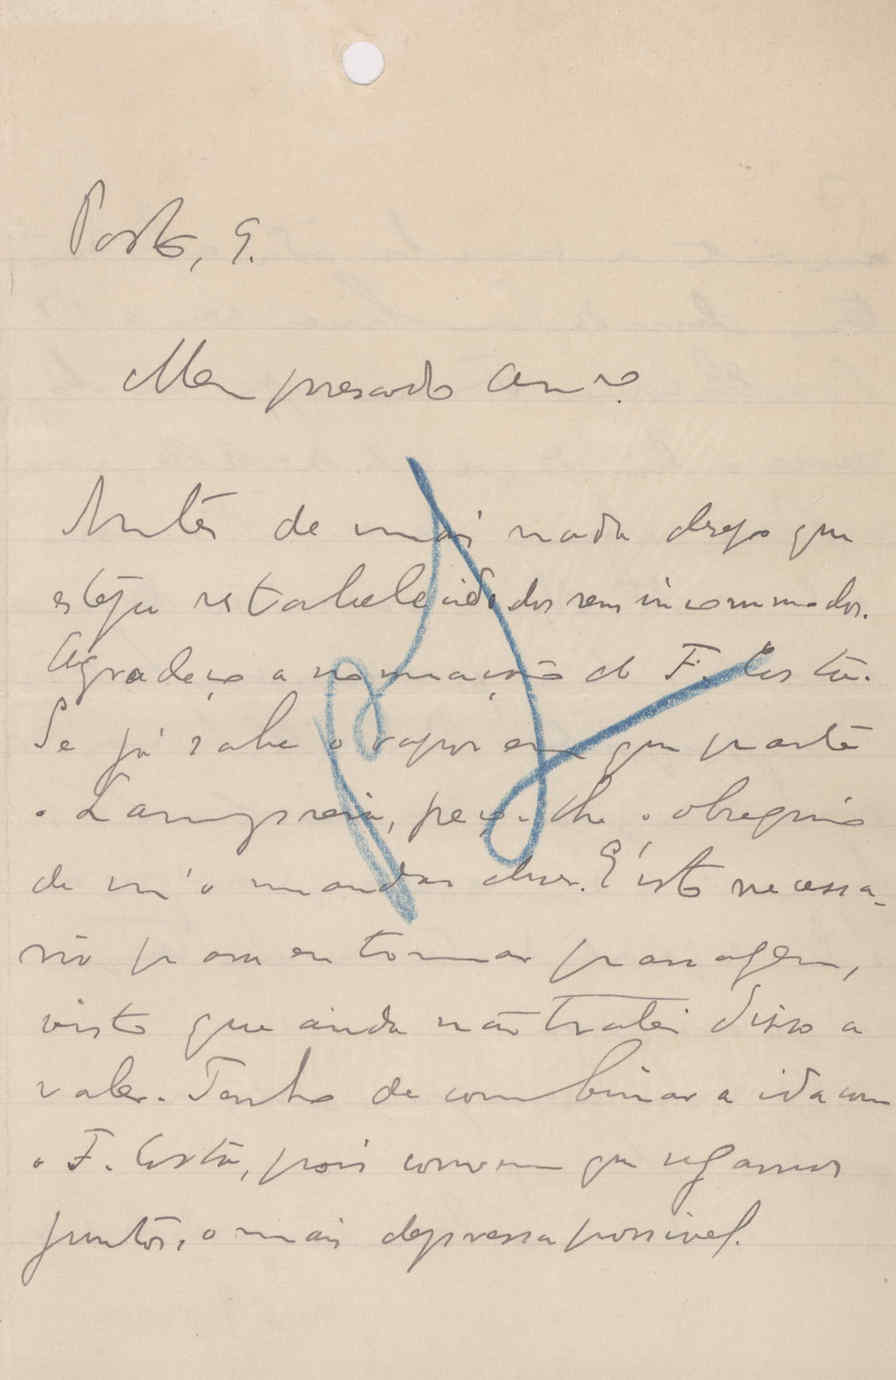 Porto, 9.
Meu presado Am.º
Antes de mais nada desejo que
esteja restabelecido dos seus incommodos.
Agradeço a nomeação do F. Costa.
Se já sabe o vapor em que parte
o Lampreia, peço-lhe o obsequio
de m'o mandar dizer. É isto necessa-
rio para eu tomar passagem,
visto que ainda não tratei disso a
valer. Tenho de combinar a ida com
o F. Costa, pois convem que sigamos
juntos, o mais depressa possivel.